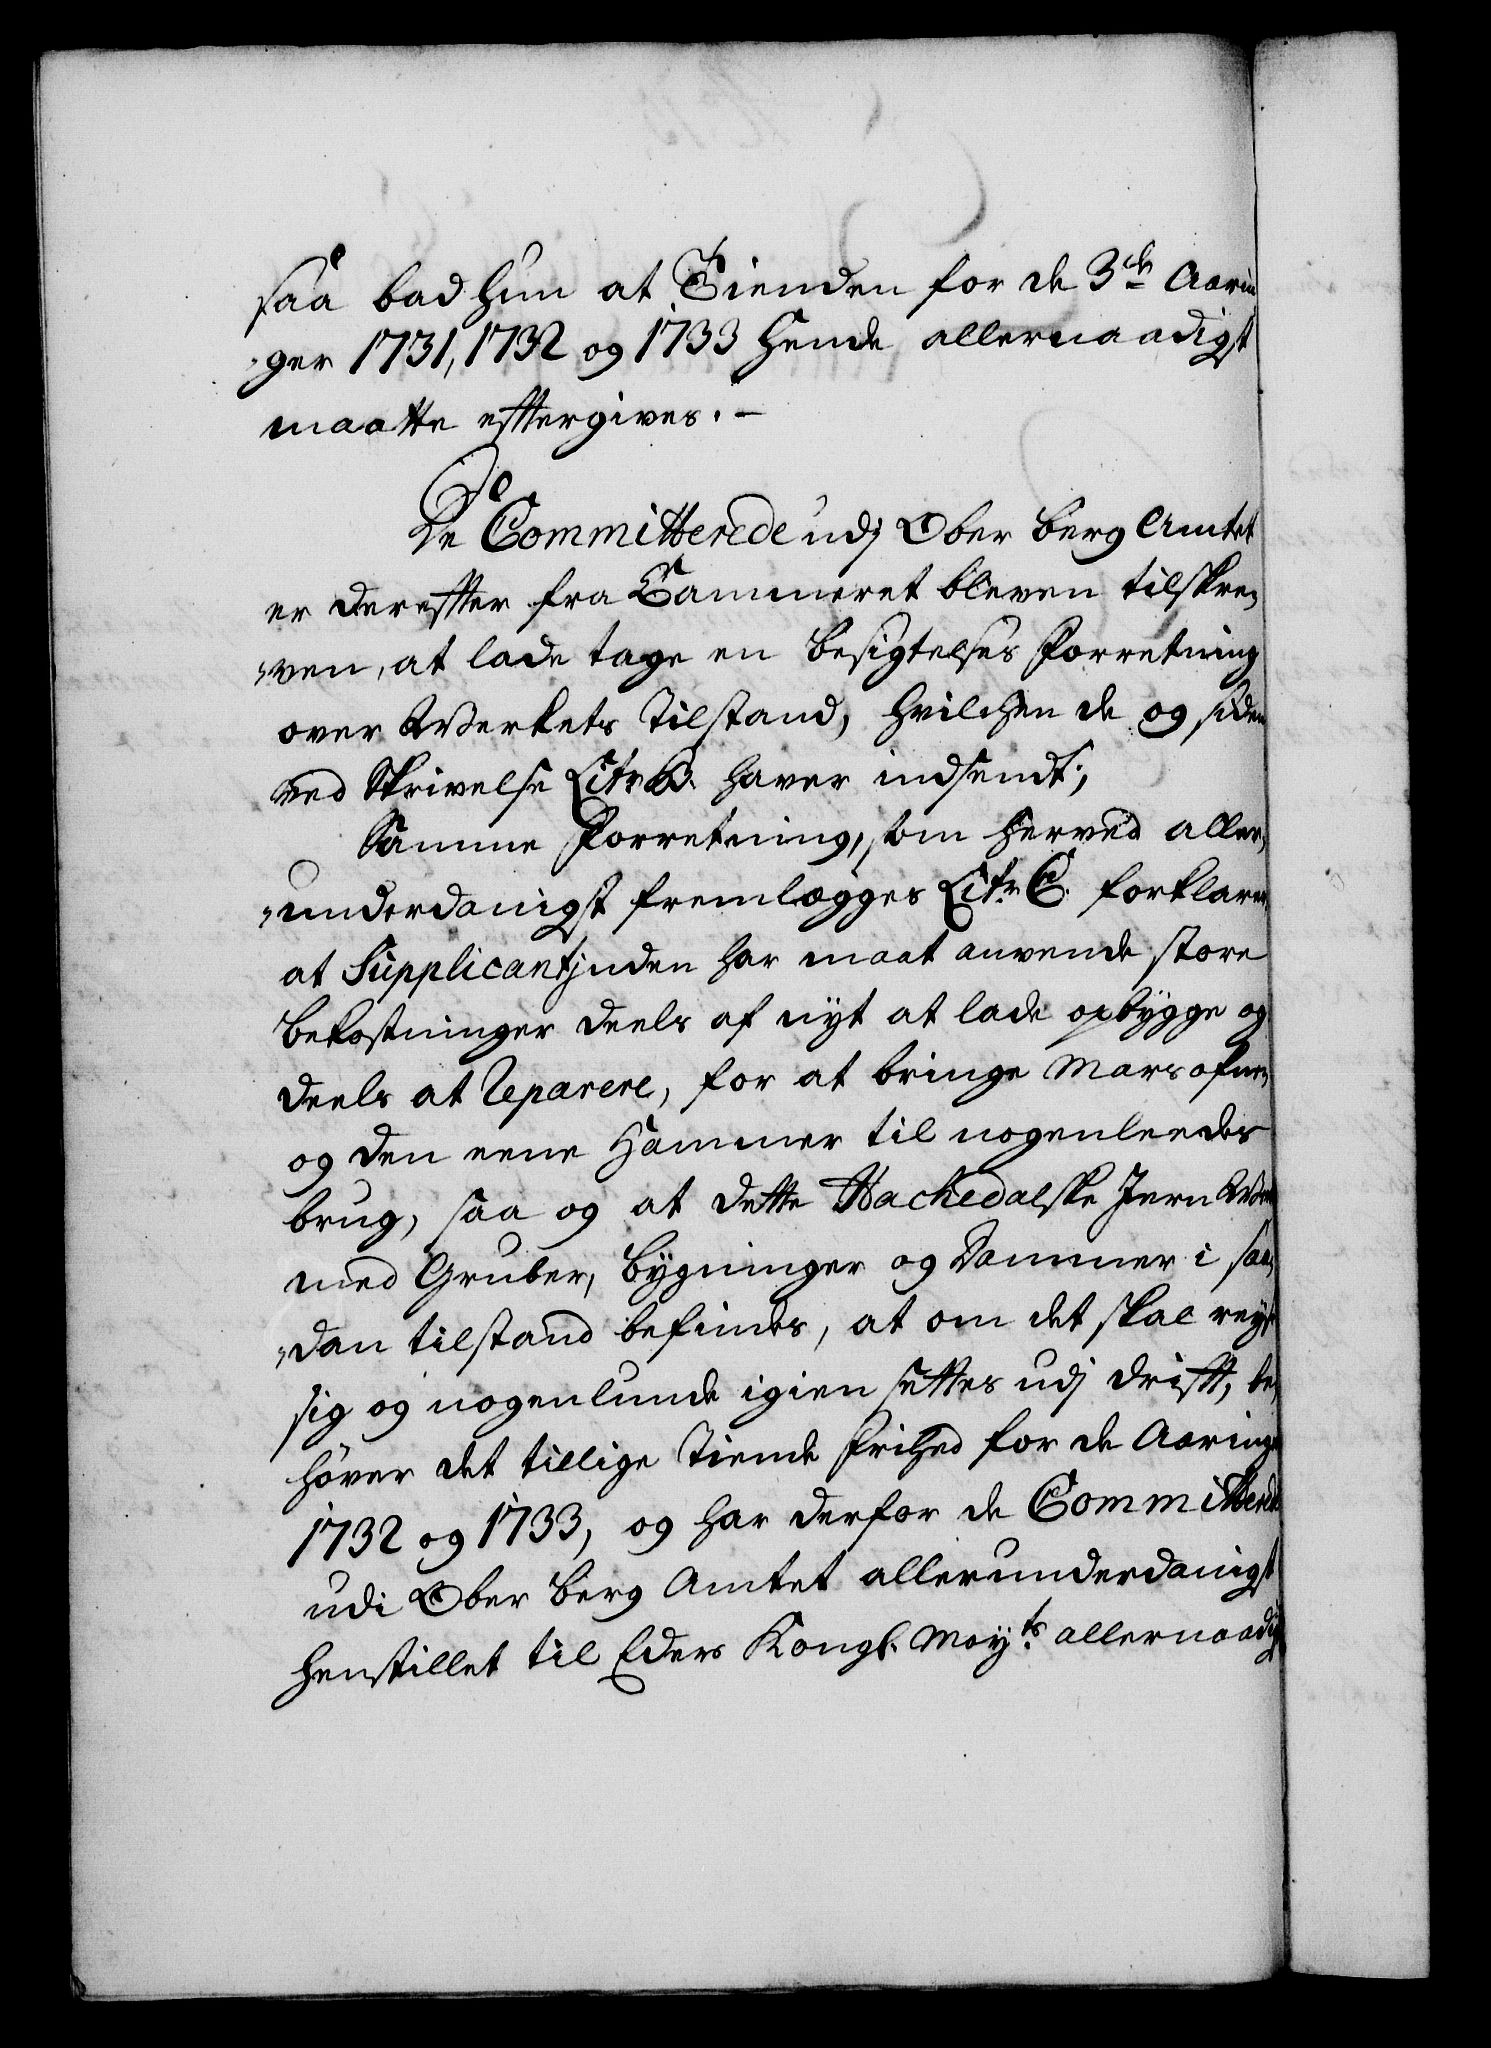 saa bad hun at Tienden for de 3de Aarin
„ger 1731, 1732 og 1733 hende allernaadigst
maatte efftergives. –
De Committerede udj Ober Berg Amtet
er dereffter fra Cammeret bleven tilskre„
„ven, at lade tage en Besigtelses Forretning
over Werkets Tilstand, hvilchen de og siden
ved Skrivelse Litr B. haver indsendt;
Samme Forretning, som herved aller„
„underdanigst fremlægges Litr. C. forklarer
at Supplicantjnden har maat anvende store
bekostninger deels af nyt at lade opbygge og
deels at reparere, for at bringe Mars ofnen
og den eene Hammer til nogenleedes
brug, saa og at dette Hackedalske Jern Werk
med Gruber, Bygninger og Dammer i saa„
„dan tilstand befindes, at om det skal reyse
sig og nogenlunde igien settes udj drifft, be„
höver det tillige Tiende Frihed for de Aaringer
1732 og 1733, og har derfor de Committerede
udi Ober Berg Amtet allerunderdanigst
henstillet til Eders Kongl. Mayts. allernaadigst